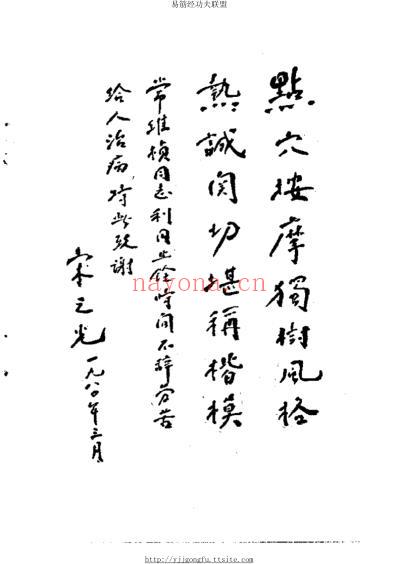 易筋经功夫联盟
點穴按摩獨樹風格
熱誠関切堪稱楷模
常维桢同志利用业餘时间不辞劳苦
给人治病,特此致谢
宋之光
一九八〇年三月
nayona.cn
http://yijgongfu.ttsite.com